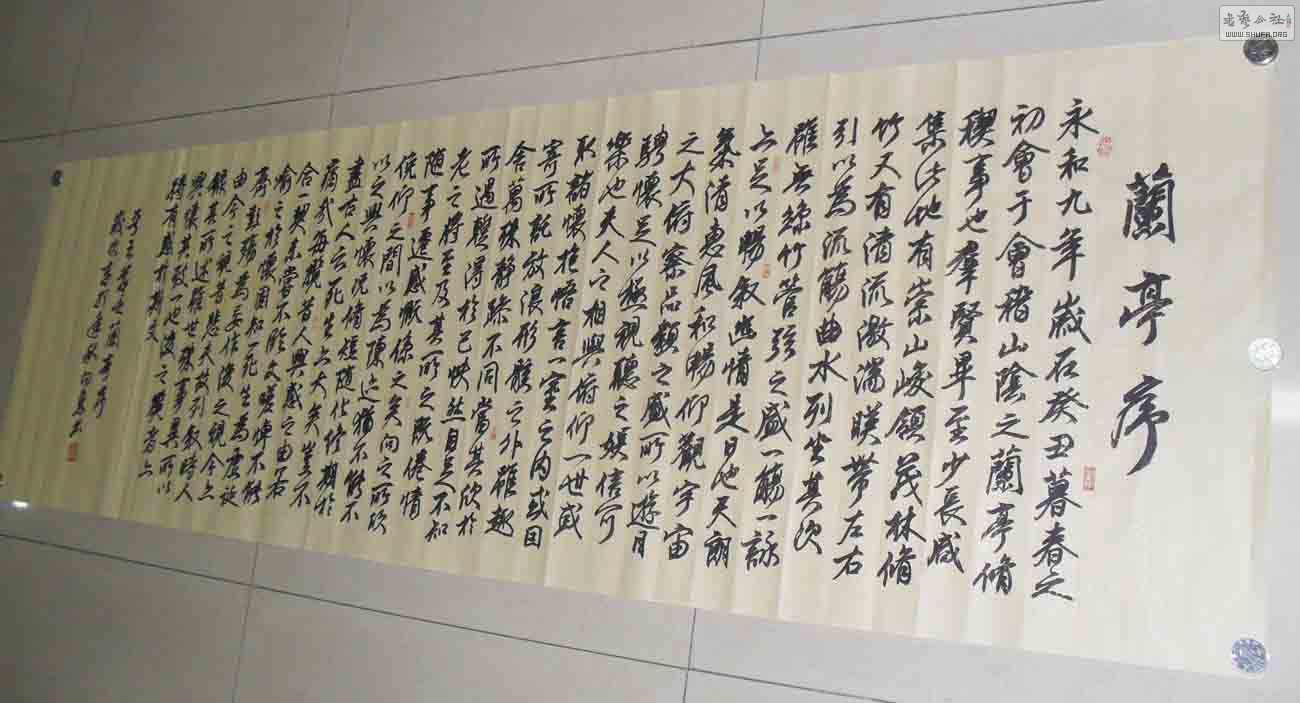 蘭亭序
永和九年歲在癸丑暮春之
初會于會稽山陰之蘭亭脩
禊事也羣賢畢至少長咸
集此地有崇山峻領茂林脩
竹又有清流激湍暎帶左右
引以為流觴曲水列坐其次
雖無絲竹管弦之盛一觴一詠
亦足以暢敘幽情是日也天朗
氣清惠風和暢仰觀宇宙
之大俯察品類之盛所以遊目
騁懷足以極視聽之娛信可
樂也夫人之相與俯仰一世或
取諸懷抱悟言一室之內或因
寄所託放浪形骸之外雖趣
舍萬殊靜躁不同當其欣於
所遇暫得於己怏然自足不知
老之將至及其所之既倦情
隨事遷感慨係之矣向之所欣
俛仰之間以為陳迹猶不能不
以之興懷況脩短隨化終期於
盡古人云死生亦大矣豈不
痛哉每覽昔人興感之由若
合一契未嘗不臨文嗟悼不能
喻之於懷固知一死生為虛誕
齊彭殤為妄作後之視今亦
由今之視昔悲夫故列敘時人
錄其所述雖世殊事異所以
興懷其致一也後之攬者亦
將有感於斯文
王羲之蘭亭序
書藝公社
WWW.SHUFA.ORG